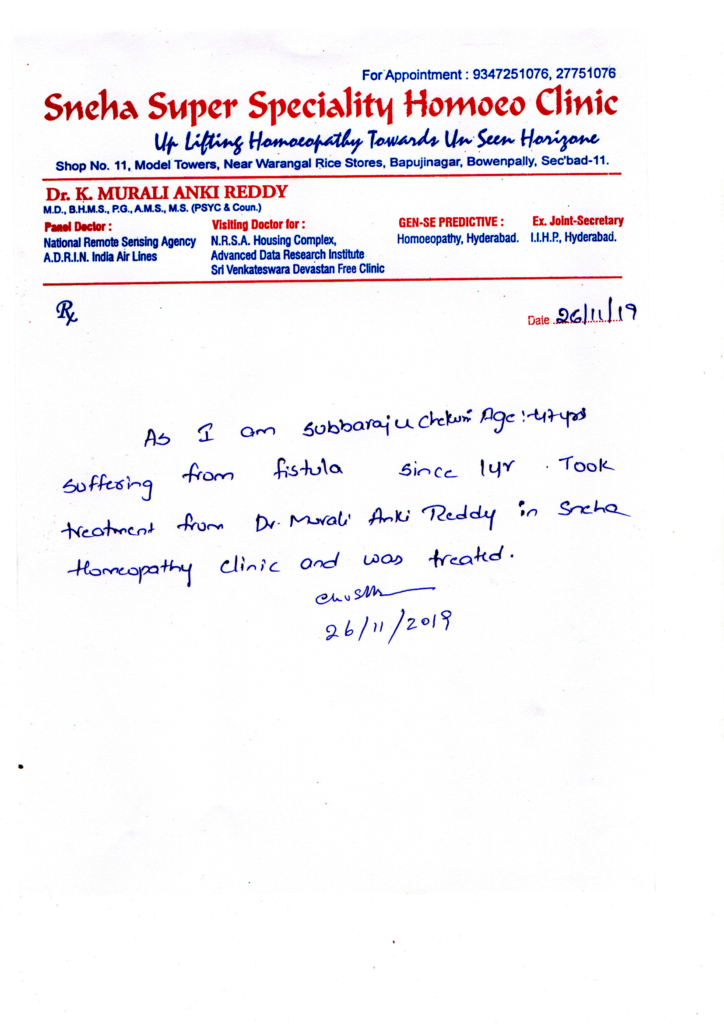 For Appointment : 9347251076, 27751076
Sneha Super Speciality Homoeo Clinic
Up Lifting Homoeopathy Towards Un Seen Horizone
Shop No. 11, Model Towers, Near Warangal Rice Stores, Bapujinagar, Bowenpally, Sec'bad-11.
Dr. K. MURALI ANKI REDDY
M.D., B.H.M.S., P.G., A.M.S., M.S. (PSYC & Coun.)
Panel Doctor :
National Remote Sensing Agency
A.D.R.I.N. India Air Lines
Visiting Doctor for :
N.R.S.A. Housing Complex,
Advanced Data Research Institute
Sri Venkateswara Devastan Free Clinic
GEN-SE PREDICTIVE :
Homoeopathy, Hyderabad.
Ex. Joint-Secretary
I.I.H.P., Hyderabad.
Rx
Date 26/11/19
As I am Subbaraju Chekuri Age:-47yrs
suffering from fistula since 1yr . Took
treatment from Dr. Murali Anki Reddy in Sneha
Homeopathy clinic and was treated.
26/11/2019